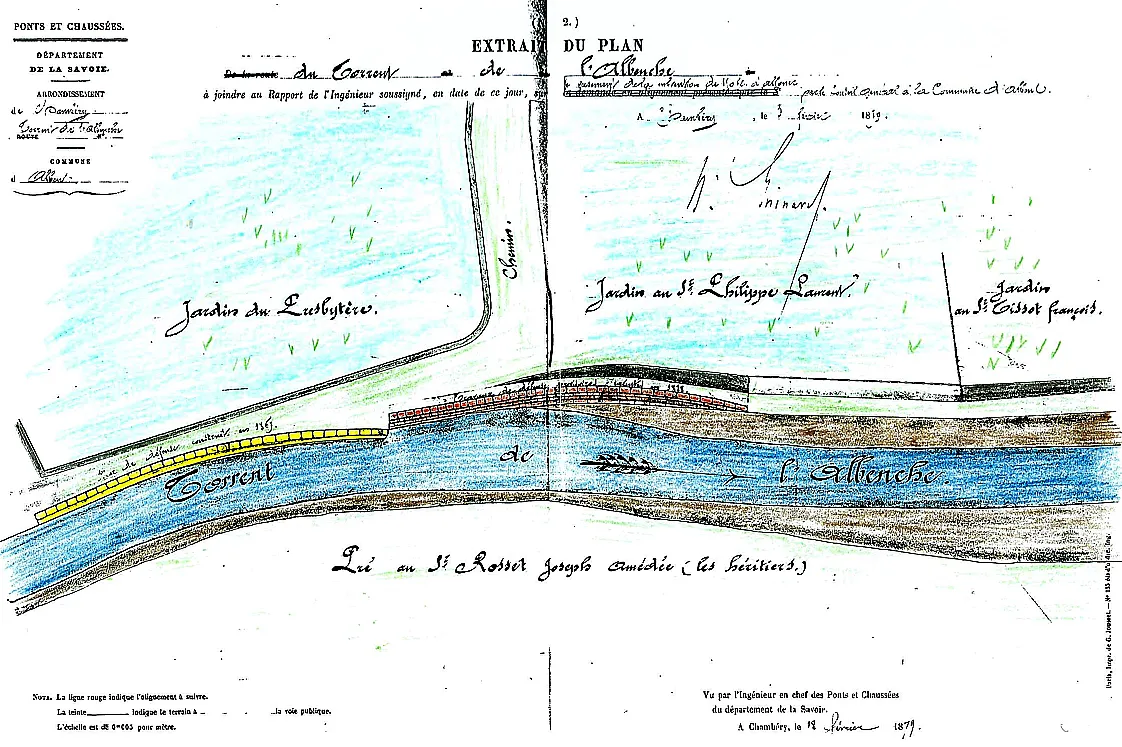 PONTS ET CHAUSSÉES.
DÉPARTEMENT
DE LA SAVOIE.
ARRONDISSEMENT
de Chambéry
Torrent de l'Albenche
ROUTE N°
COMMUNE
d'Albens
( 2.)
EXTRAIT DU PLAN
De la route du Torrent de l'Albenche
à joindre au Rapport de l'Ingénieur soussigné, en date de ce jour, sur
par le Conseil Général à la Commune d'Albens.
A Chambéry, le février 1879.
Chemin.
Jardin du Presbytère.
Jardin au Sr. Philippe Laurent.
Jardin
au Sr. Tissot françois.
Mur de défense construit en 186
Torrent de l'Albenche.
Pré au Sr. Rosset Joseph Amédée (les héritiers.)
NOTA. La ligne rouge indique l'alignement à suivre.
La teinte indique le terrain à la voie publique.
L'échelle est de 0m005 pour mètre.
Vu par l'Ingénieur en chef des Ponts et Chaussées
du département de la Savoie.
A Chambéry, le 12 février 1879.